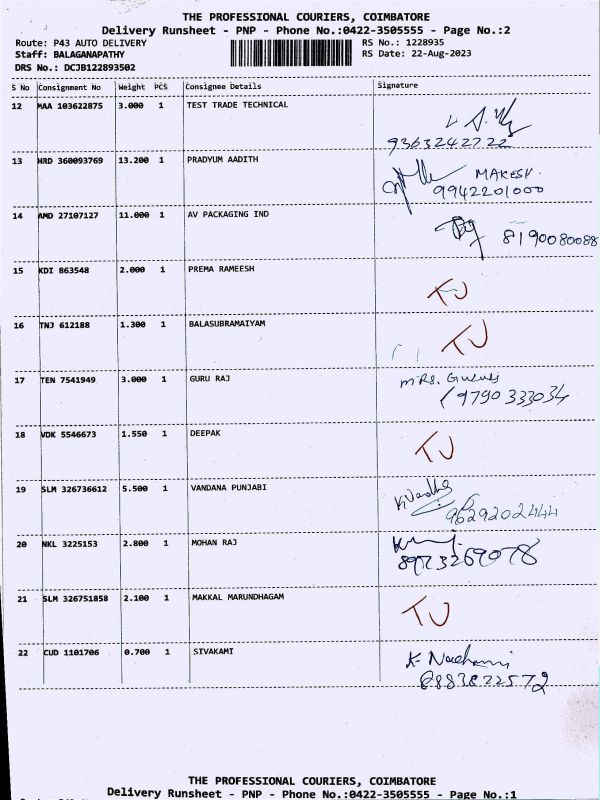 THE PROFESSIONAL COURIERS, COIMBATORE
Delivery Runsheet - PNP - Phone No.:0422-3505555 - Page No.:2
Route: P43 AUTO DELIVERY RS No.: 1228935
Staff: BALAGANAPATHY RS Date: 22-Aug-2023
DRS No.: DCJB122893502
S No Consignment No Weight PCS Consignee Details Signature
12 MAA 103622875 3.000 1 TEST TRADE TECHNICAL
9363242722
13 HRD 360093769 13.200 1 PRADYUM AADITH
MAKESH.
9942201000
14 AMD 27107127 11.000 1 AV PACKAGING IND
8190080088
15 KDI 863548 2.000 1 PREMA RAMEESH
TJ
16 TNJ 612188 1.300 1 BALASUBRAMAIYAM
TJ
17 TEN 7541949 3.000 1 GURU RAJ
MRS.
9790333034
18 VDK 5546673 1.550 1 DEEPAK
TJ
19 SLM 326736612 5.500 1 VANDANA PUNJABI
9629202444
20 NKL 3225153 2.800 1 MOHAN RAJ
8973269078
21 SLM 326751858 2.100 1 MAKKAL MARUNDHAGAM
TJ
22 CUD 1101706 0.700 1 SIVAKAMI
8883822572
THE PROFESSIONAL COURIERS, COIMBATORE
Delivery Runsheet - PNP - Phone No.:0422-3505555 - Page No.:1